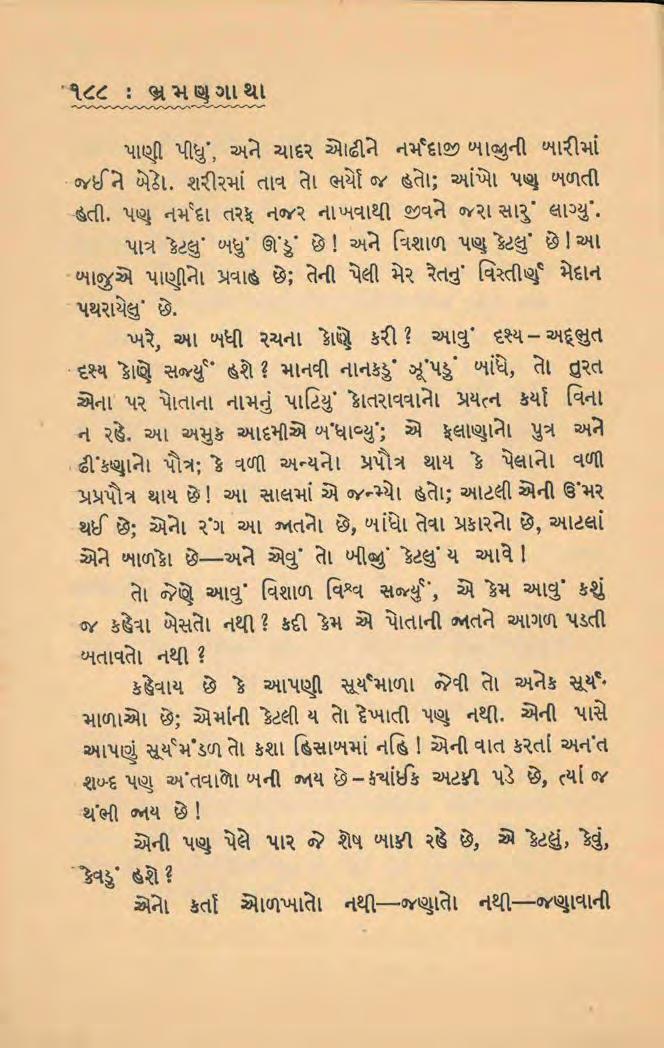 ૧૮૮ : ભ્રમણગાથા
પાણી પીધું, અને ચાદર ઓઢીને નર્મદાજી બાજુની બારીમાં
જઈને બેઠો. શરીરમાં તાવ તો ભર્યો જ હતો; આંખો પણ બળતી
હતી. પણ નર્મદા તરફ નજર નાખવાથી જીવને જરા સારું લાગ્યું.
પાત્ર કેટલું બધું ઊંડું છે! અને વિશાળ પણ કેટલું છે! આ
બાજુએ પાણીનો પ્રવાહ છે; તેની પેલી મેર રેતનું વિસ્તીર્ણ મેદાન
પથરાયેલું છે.
ખરે, આ બધી રચના કોણે કરી? આવું દશ્ય – અદ્દભુત
દશ્ય કોણે સર્જ્યું હશે? માનવી નાનકડું ઝૂંપડું બાંધે, તો તુરત
એના પર પોતાના નામનું પાટિયું કોતરાવવાનો પ્રયત્ન કર્યા વિના
ન રહે. આ અમુક આદમીએ બંધાવ્યું; એ ફલાણાનો પુત્ર અને
ઢીંકણાનો પૌત્ર; કે વળી અન્યનો પ્રપૌત્ર થાય કે પેલાનો વળી
પ્રપ્રપૌત્ર થાય છે! આ સાલમાં એ જન્મ્યો હતો; આટલી એની ઉંમર
થઈ છે; એનો રંગ આ જાતનો છે, બાંધો તેવા પ્રકારનો છે, આટલાં
એને બાળકો છે—અને એવું તો બીજું કેટલું ય આવે!
તો જેણે આવું વિશાળ વિશ્વ સર્જ્યું, એ કેમ આવું કશું
જ કહેવા બેસતો નથી? કદી કેમ એ પોતાની જાતને આગળ પડતી
બતાવતો નથી?
કહેવાય છે કે આપણી સૂર્યમાળા જેવી તો અનેક સૂર્ય-
માળાઓ છે; એમાંની કેટલી ય તો દેખાતી પણ નથી. એની પાસે
આપણું સૂર્યમંડળ તો કશા હિસાબમાં નહિ! એની વાત કરતાં અનંત
શબ્દ પણ અંતવાળો બની જાય છે – કયાંઈક અટકી પડે છે, ત્યાં જ
થંભી જાય છે!
એની પણ પેલે પાર જે શેષ બાકી રહે છે, એ કેટલું, કેવું,
કેવડું હશે?
એનો કર્તા ઓળખાતો નથી—જણાતો નથી—જણાવાની